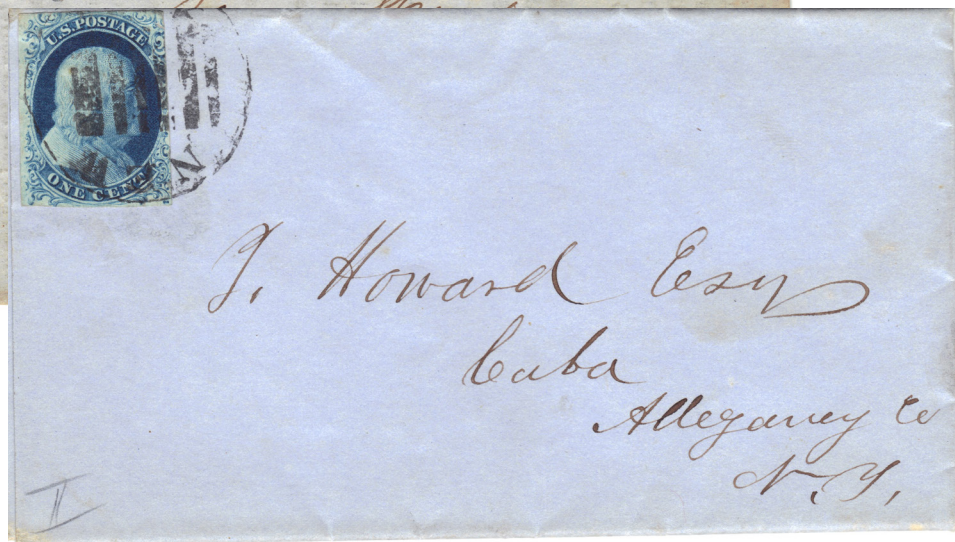 U.S. POSTAGE
ONE CENT
J. Howard Esq
Cuba
Allegancy Co
N.Y.
II